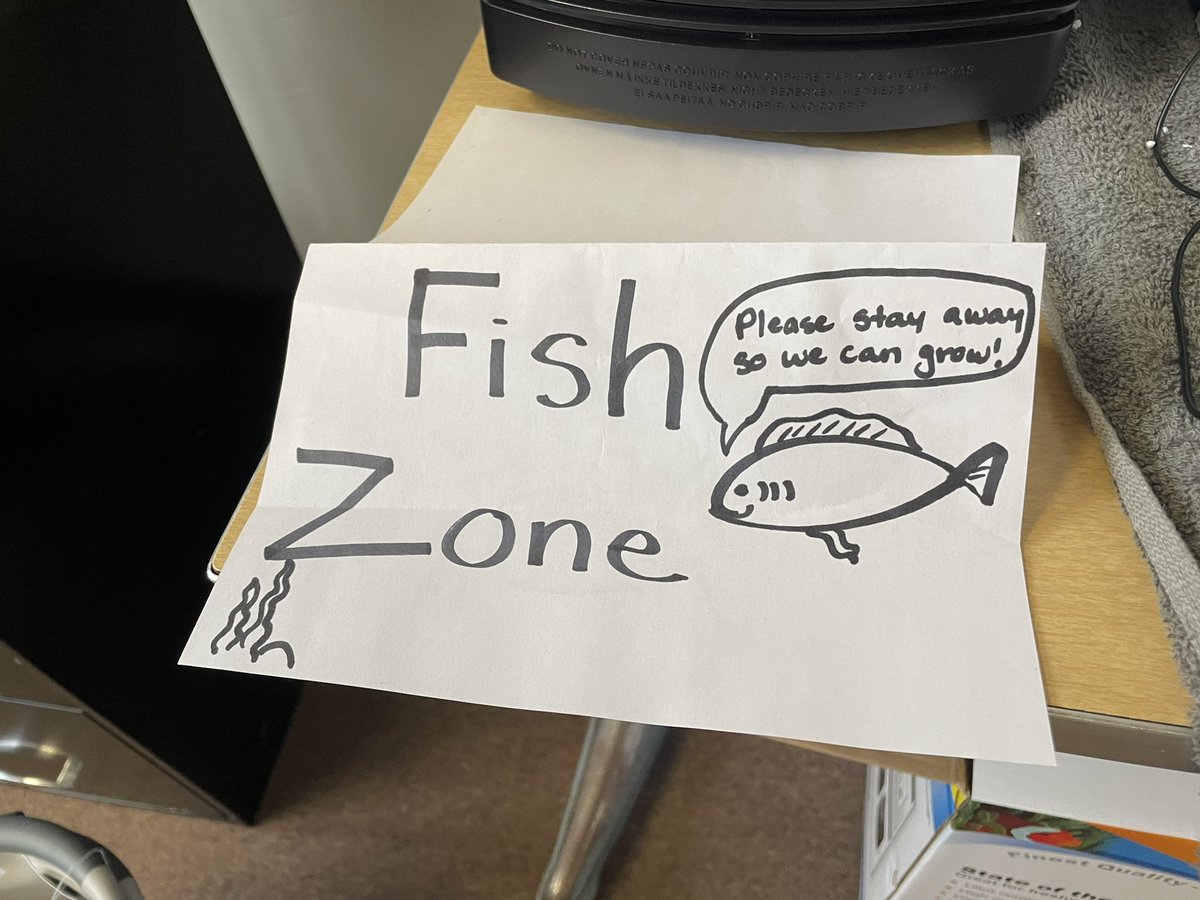 DO NOT COVER NE PAS COUVRIR NON COPRIRE
OVNEN MÅ IKKE TILDEKKES NICHT BEDECKEN NIET BEDEKKEN
EI SAA PEITTÄÄ NO CUBRIR NÃO COBRIR
Fish
Zone
Please stay away
so we can grow!
Finest Quality
State of the
Great for